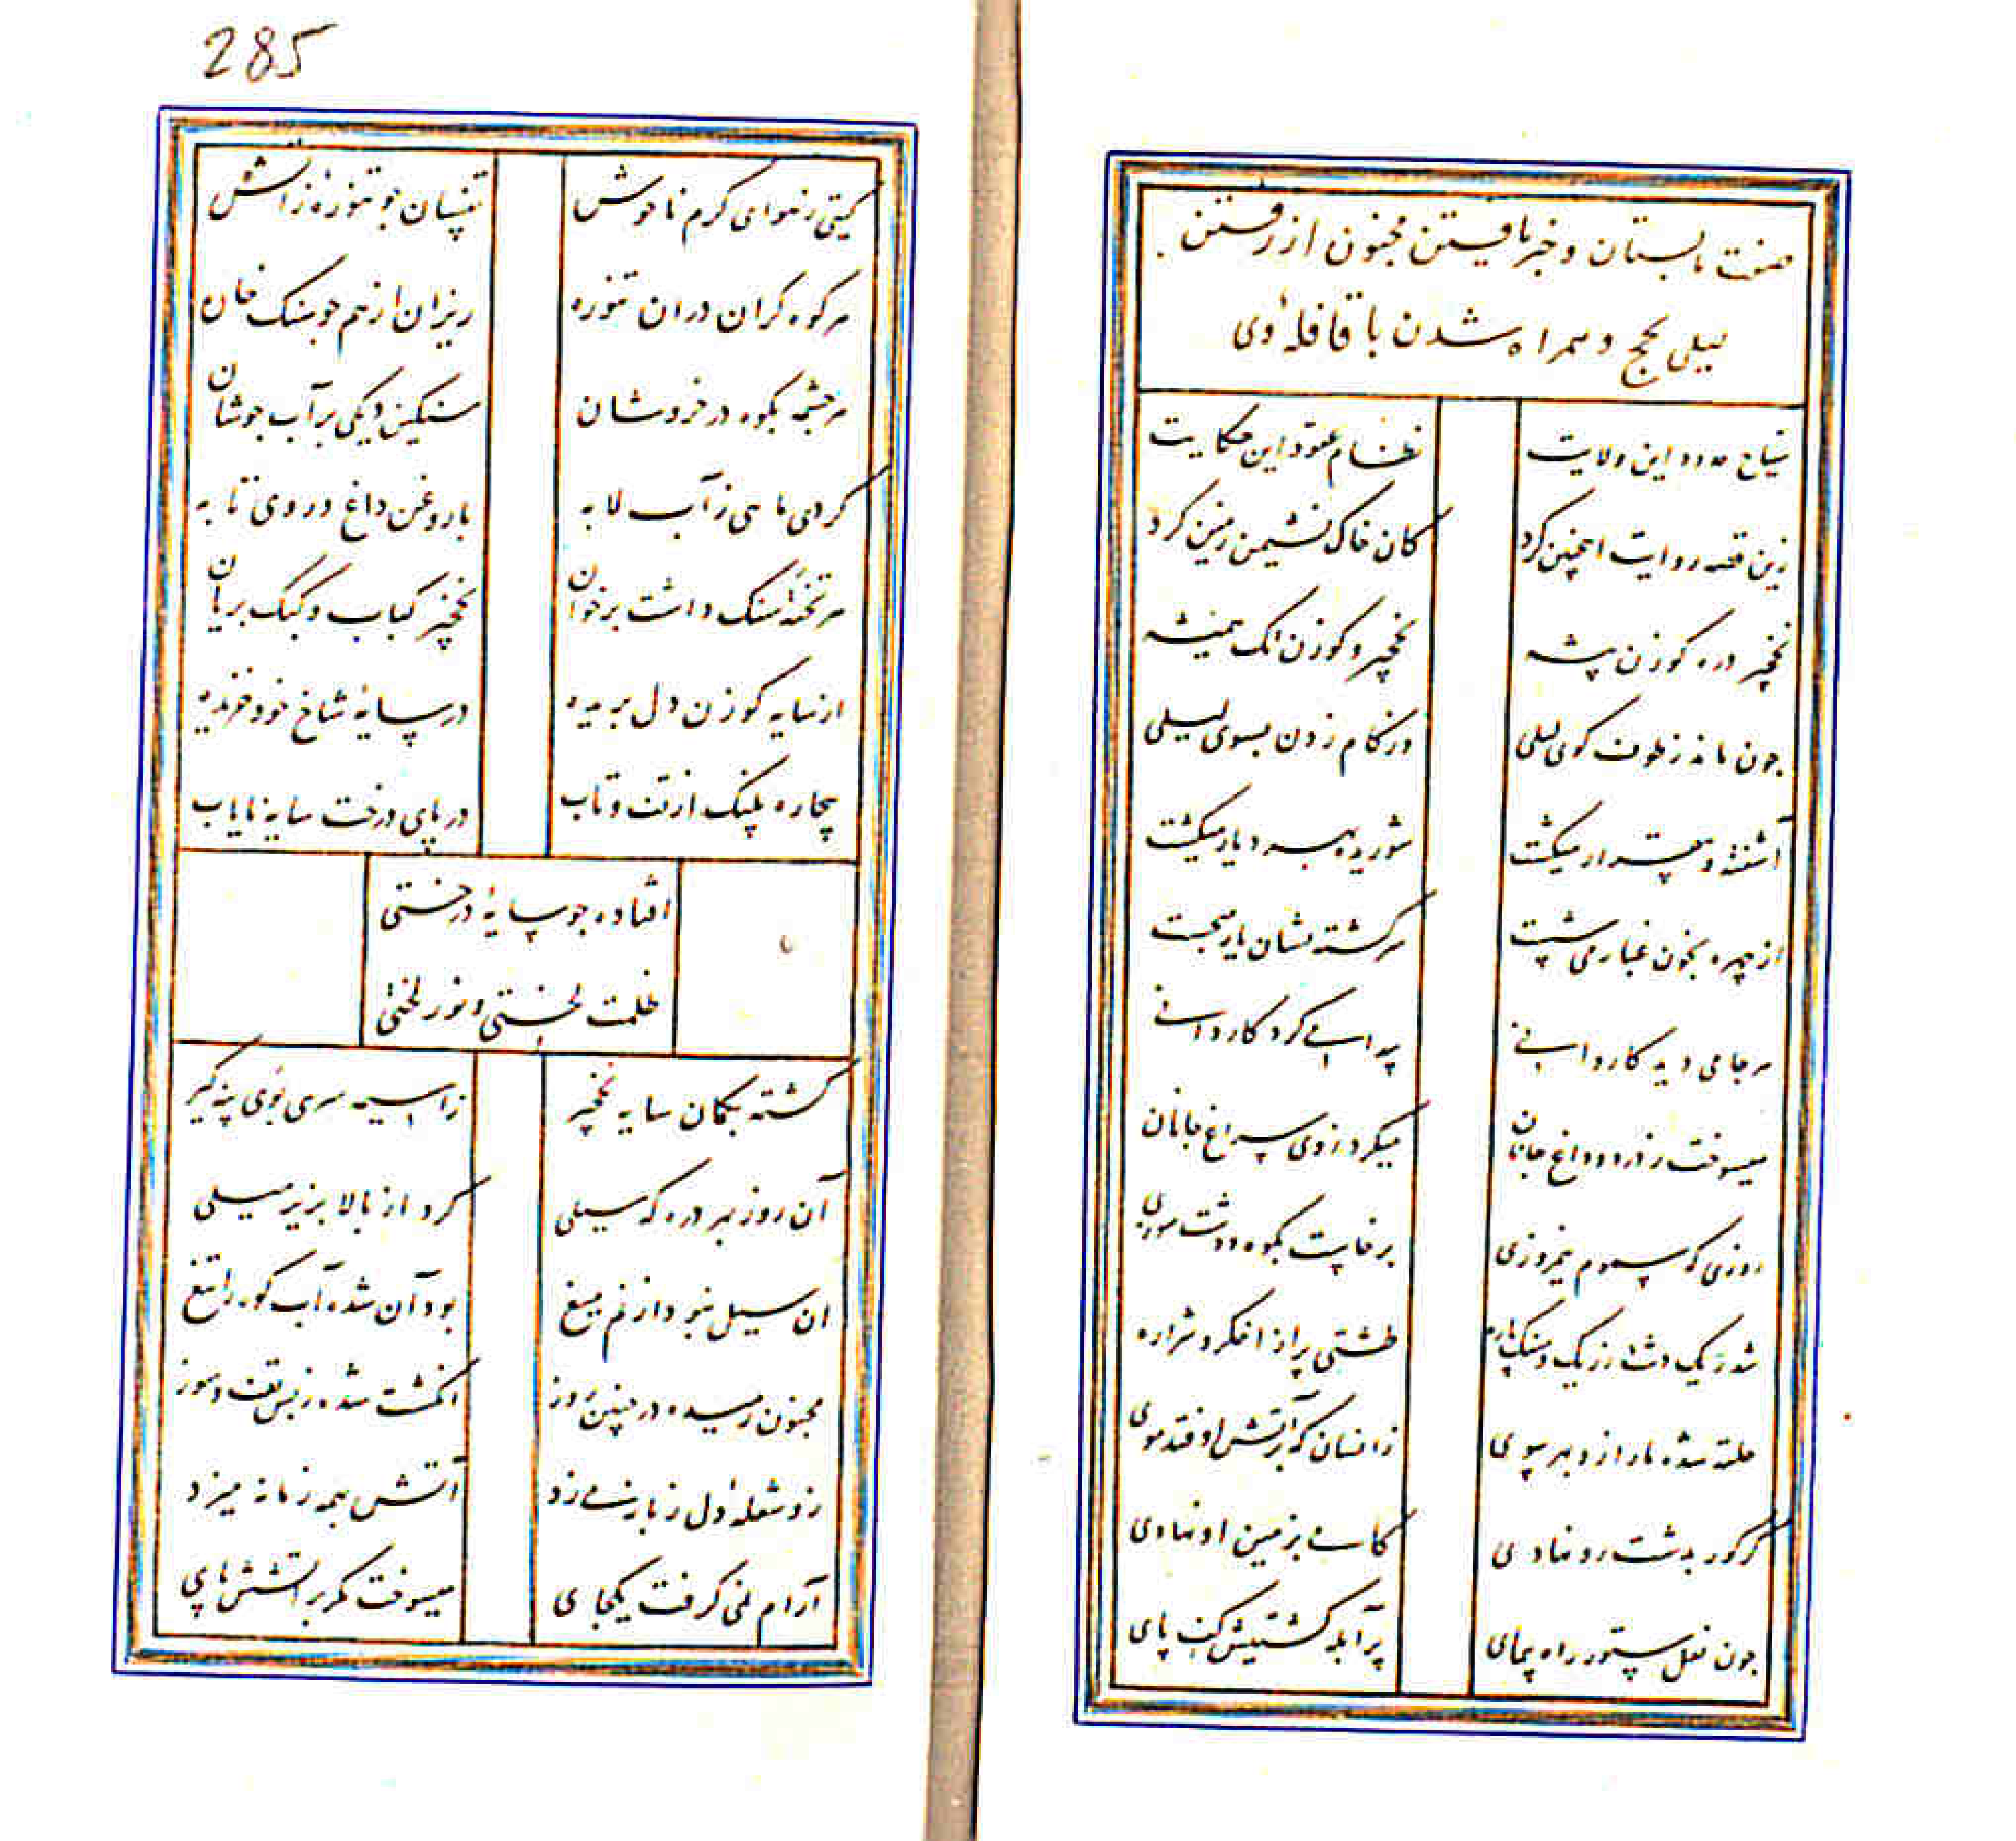 صفت تابستان و خبر یافتن مجنون از رفتن
لیلی بحج و همراه شدن با قافله وی
سیاح حدود این ولایت نظام عقود این حکایت
زین قصه روایت اینچنین کرد کان خاک نشیمن زمین کرد
نخچیر دره کوزن پیشه نخچیر و کوزن تک همیشه
جون ماند ز طوف کوی لیلی وز کام زدن بسوی لیلی
آشفته و بیقرار میکشت شوریده بهر دیار میکشت
از چهره بخون غبار می شست سرکشته نشان یار میجست
هر جا می دید کاروانی پیدا بی کرد کاروانی
میسوخت ز درد و داغ جانان میکرد ازوی سراغ جانان
روزی که سموم نیمروزی برخاست بکوه و دشت سوزی
شد ز یک دشت از ریک و سنک پاره طشتی پر از اخکر و شراره
حلقه شده مار ازو بهر سوی زانسان که بر آتش اوفتد موی
کر کور بدشت رو نهادی کامی بزمین او نهادی
جون نعل ستور راه پیمای پر آبله کشتیش کف پای
285
کیتی ز هوای کرم ناخوش تفسان جو تنوره ز آتش
هر کوه کران دران تنوره ریزان از هم جو سنک
هر جشمه بکوه در خروشان سنکین دیکی بر آب جوشان
کردی ماهی ز آب لابه با روغن داغ در وی تابه
هر تخته سنک داشت بر خوان نخچیر کباب و کبک بریان
از سایه کوزن دل بریده در سایه شاخ خود خزیده
بیچاره پلنک از تف و تاب در پای درخت سایه نایاب
افتاده جو سایه درختی
ظلمت لختی و نور لختی
کشته بکمان سایه نخچیر ز آسیمه سری بوی پنه کیر
آن روز بهر دره که سیلی کرد از بالا بزیر میلی
ان سیل نبود از نم میغ بود آن شده آب کوه را تیغ
مجنون رمیده در چنین روز انکشت شده ز بس تف و سوز
زو شعله دل زبانه می زد آتش بهمه زمانه میزد
آرام نمی کرفت یکجای میسوخت مکر بر آتشش پای